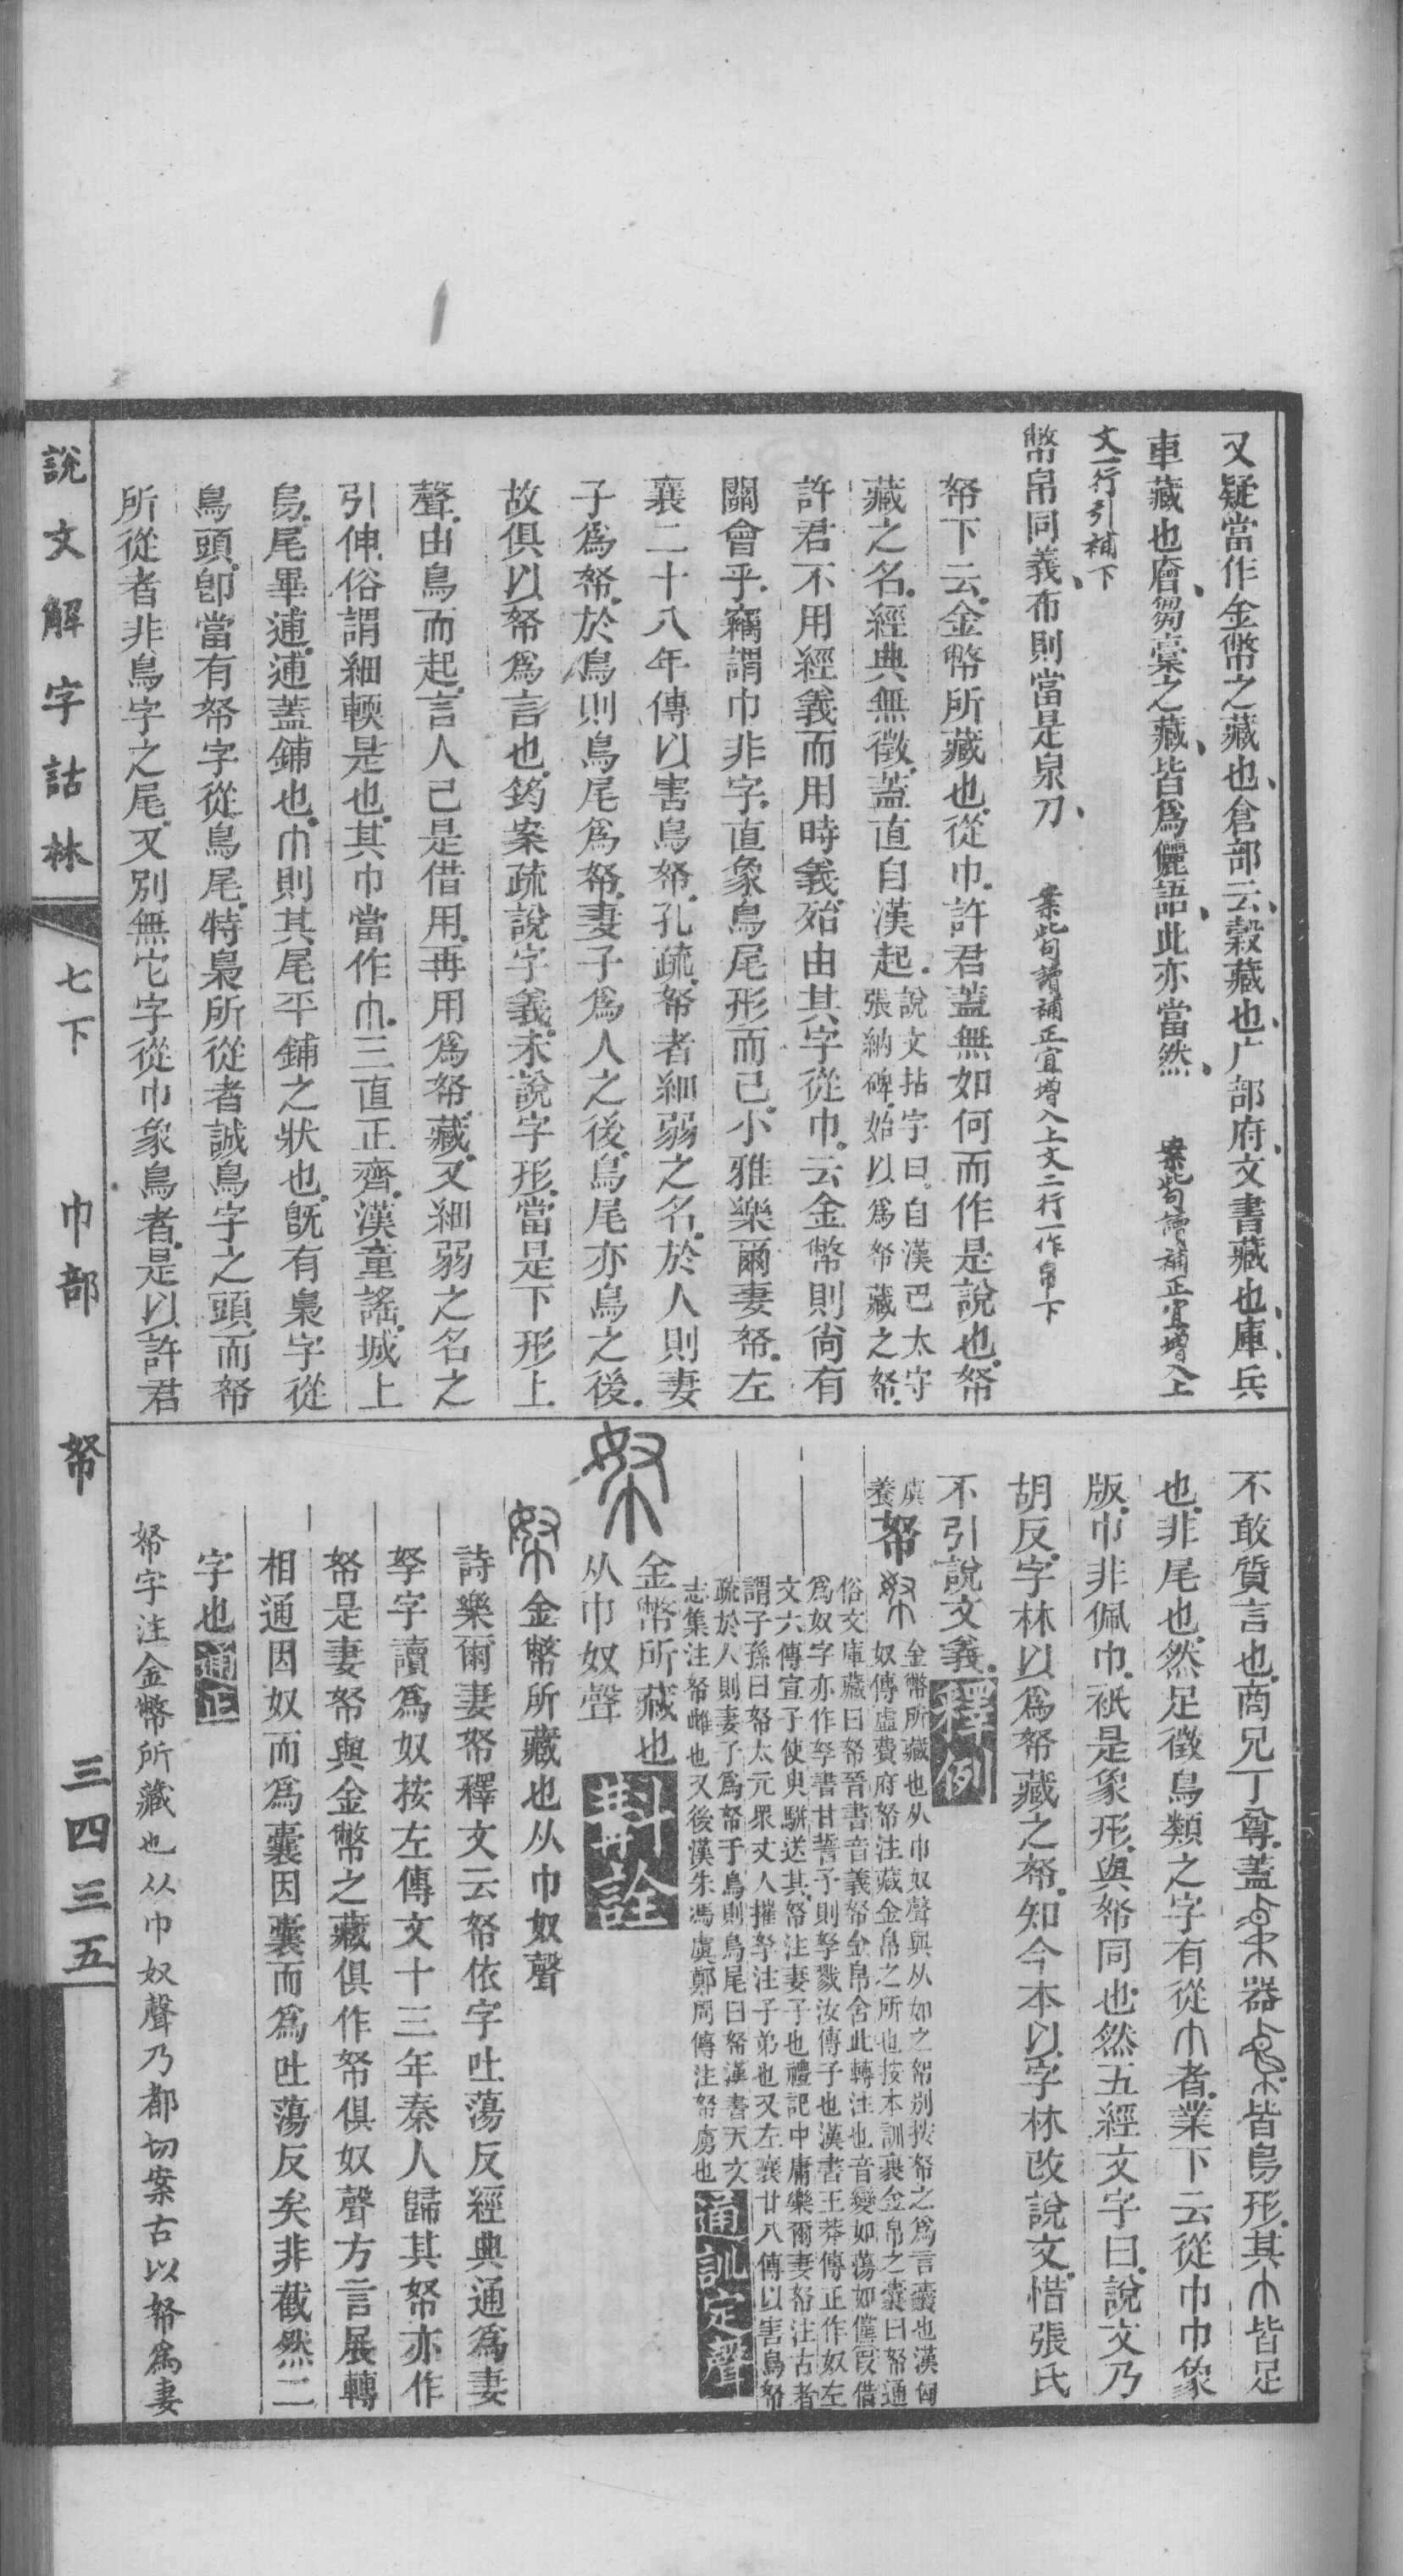 又疑當作金幣之藏也倉部云穀藏也广部府文書藏也庫兵
車藏也廥芻藁之藏皆爲儷語此亦當然 案此句讀補正宜增入上
文一行引補下
幣帛同義布則當是泉刀 案此句讀補正宜增入上文二行一作帛下
帑下云金幣所藏也從巾許君蓋無如何而作是說也帑
藏之名經典無徵蓋直自漢起說文拈字曰自漢巴太守
張納碑始以爲帑藏之帑
許君不用經義而用時義殆由其字從巾云金幣則尙有
關會乎竊謂巾非字直象鳥尾形而已小雅樂爾妻帑左
襄二十八年傳以害鳥帑孔疏帑者細弱之名於人則妻
子爲帑於鳥則鳥尾爲帑妻子爲人之後鳥尾亦鳥之後
故俱以帑爲言也筠案疏說字義未說字形當是下形上
聲由鳥而起言人已是借用再用爲帑藏又細弱之名之
引伸俗謂細輭是也其巾當作巾三直正齊漢童謠城上
烏尾畢逋逋蓋鋪也巾則其尾平鋪之狀也旣有梟字從
鳥頭卽當有帑字從鳥尾特梟所從者誠鳥字之頭而帑
所從者非鳥字之尾又別無它字從巾象鳥者是以許君
不敢質言也商兄丁尊蓋器皆鳥形其皆足
也非尾也然足徵鳥類之字有從巾者業下云從巾巾象
版巾非佩巾祇是象形與帑同也然五經文字曰說文乃
胡反字林以爲帑藏之帑知今本以字林改說文惜張氏
不引說文義釋例
虞
養
帑 金幣所藏也从巾奴聲與从如之帤別按帑之爲言囊也漢匈
奴傳虛費府帑注藏金帛之所也按本訓裹金帛之囊曰帑通
俗文庫藏曰帑晉書音義帑金帛舍此轉注也音變如蕩如儻叚借
爲奴字亦作孥書甘誓予則孥戮汝傳子也漢書王莽傳正作奴左
文六傳宣子使臾駢送其帑注妻子也禮記中庸樂爾妻帑注古者
謂子孫曰帑太元衆丈人摧孥注子弟也又左襄廿八傳以害鳥帑
疏於人則妻子爲帑于鳥則鳥尾曰帑漢書天文
志集注帑雌也又後漢朱馮虞鄭周傳注帑虜也通訓定聲
金幣所藏也
从巾奴聲斠詮
金幣所藏也从巾奴聲
詩樂爾妻帑釋文云帑依字吐蕩反經典通爲妻
孥字讀爲奴按左傳文十三年秦人歸其帑亦作
帑是妻帑與金幣之藏俱作帑俱奴聲方言展轉
相通因奴而爲囊因囊而爲吐蕩反矣非截然二
字也通正
帑字注金幣所藏也从巾奴聲乃都切案古以帑爲妻
說文解字詁林 七下 巾部 帑 三四三五